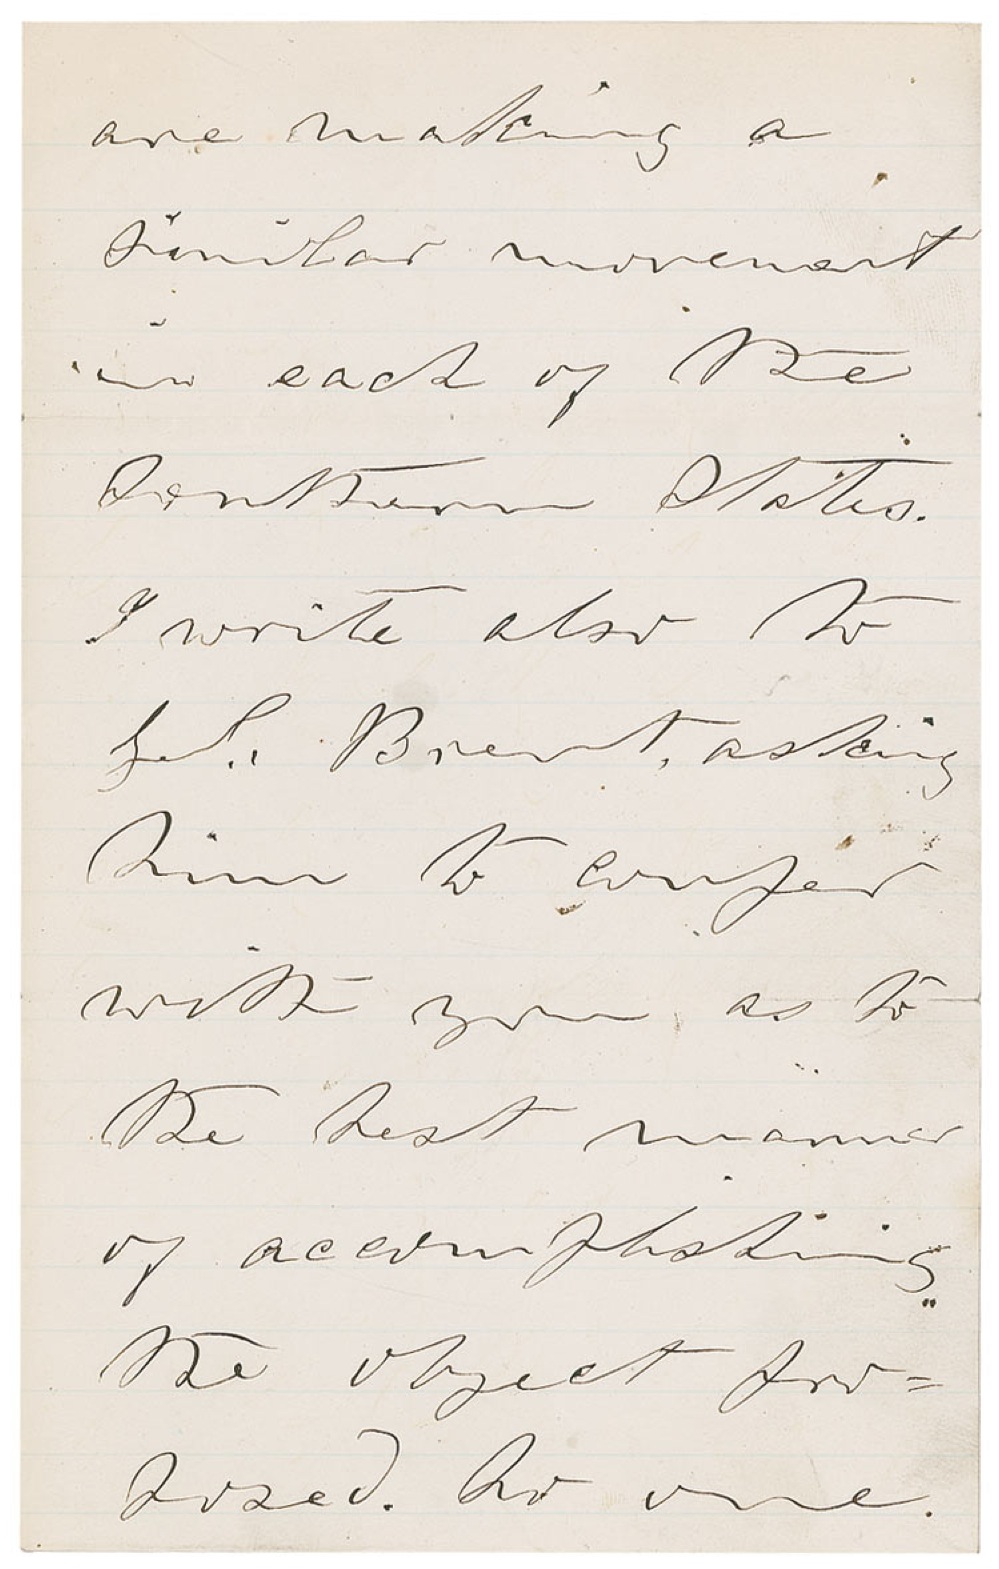 are making a
similar movement
in each of the
Southern States.
I write also to
J. L. Brent, asking
him to confer
with you as to
the best manner
of accomplishing
the object pro=
posed. No one.